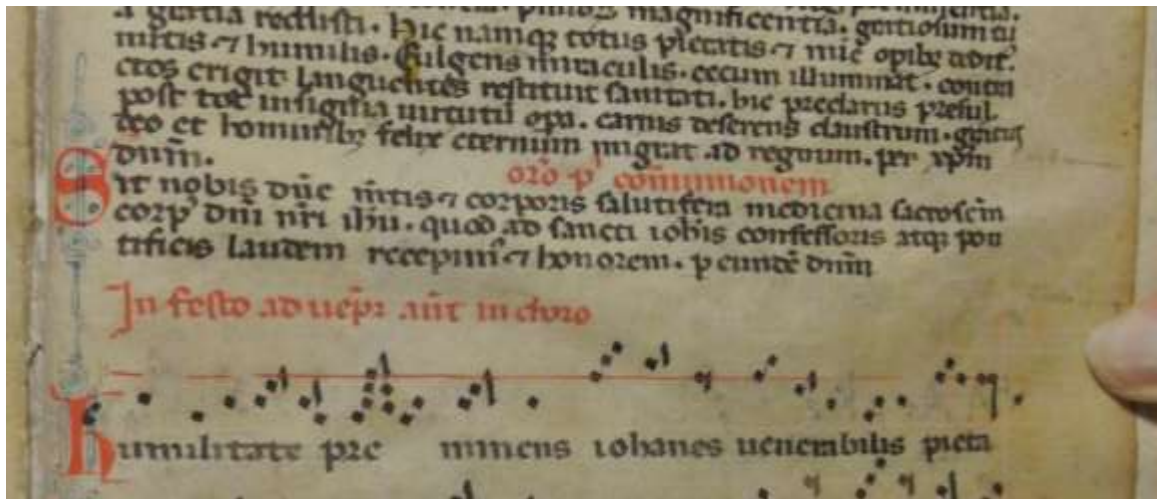 a gentia reclusti. Hic namqз totus pietatis ⁊ mie opibз
mitis ⁊ humilis. Fulgens miraculis. cecum illuminat.
ctos erigit languentes restituit sanitati. hic preclarus presul
post tot insignia uirtutũ opa. carnis deserens claustrum.
deo et hominibз felix eternum migrat ad regnum. per xpm
dñm.
oro p' cõmunionem
Sit nobis dñe mtis ⁊ corporis salutifera medicina sacroscm
corp' dñi nri ihu. quod ad sancti iohis confessoris atqз pon
tificis laudem recepim' ⁊ honorem. p eundẽ dñm
In festo ad uepr ant in choro
humilitate pre minens iohanes uenerabilis pieta